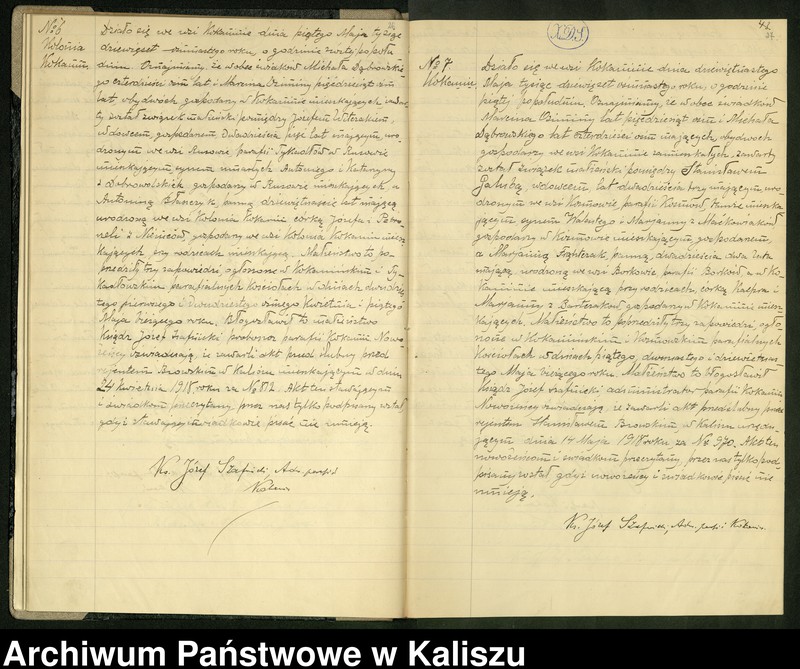 № 6
Kolonia
Kokanin
Działo się we wsi Kokaninie dnia piątego Maja tysiąc
dziewięćset osiemnastego roku, o godzinie popołu
dniu. Oznajmiamy, że wobec świadków Michała Dąbrowskie
go czterdzieści lat i Marcina pięćdziesiąt
lat, obydwóch gospodarzy w Kokaninie mieszkających, zawar
ty został związek małżeński pomiędzy Józefem
wdowcem, gospodarzem dwadzieścia pięć lat mającym, uro
dzonym we wsi Russowie, parafii Tykadłów w Russowie
mieszkającym, synem zmarłych Antoniego i Katarzyny
z Dobrowolskich gospodarzy w Russowie mieszkających, a
Antoniną panną dziewiętnaście lat mającą
urodzoną we wsi Kolonia Kokanin córką Józefa i Petro
neli z gospodarzy we wsi Kolonia Kokanin miesz
kających przy rodzicach mieszkającą. Małżeństwo to po
przedziły trzy zapowiedzi, ogłoszone w Kokanińskim i Ty
kadłowskim parafialnych Kościołach w dniach dwudzies
tego pierwszego i dwudziestego ósmego Kwietnia i piątego
Maja bieżącego roku. Błogosławił to małżeństwo
Ksiądz Józef Szafnicki proboszcz parafii Kokanin. Nowo
żeńcy zeznawają, że zawarli akt przed ślubny przed
rejentem Bzowskim w Kaliszu mieszkającym w dniu
24 Kwietnia 1918 roku za № 812. Akt ten stawającym
i świadkom przeczytany, przez nas tylko podpisany został,
gdyż stawający i świadkowie pisać nie umieją.
Ks. Józef Szafnicki Adm. paraf.
Kokanin
41
№ 7.
Kokanin.
Działo się we wsi Kokaninie dnia dziewiętnastego
Maja tysiąc dziewięćset osiemnastego roku, o godzinie
piątej popołudniu. Oznajmiamy, że wobec świadków
Marcina lat pięćdziesiąt osiem i Michała
Dąbrowskiego lat czterdzieści osiem mających, obydwóch
gospodarzy we wsi Kokaninie zamieszkałych, zawarty
został związek małżeński pomiędzy Stanisławem
wdowcem, lat dwadzieścia trzy mającym, uro
dzonym we wsi Koźminie parafii tamże mieszka
jącym synem i Maryanny z
gospodarzy w Koźminie mieszkającym, gospodarzem,
a Maryanną panną, dwadzieścia dwa lata
mającą, urodzoną we wsi Borkowie parafii Borków a w Ko
kaninie mieszkającą przy rodzicach, córką Kacpra i
Maryanny z Bartczaków gospodarzy w Kokaninie miesz
kających. Małżeństwo to poprzedziły trzy zapowiedzi, ogło
szone w Kokanińskim i parafialnych
Kościołach w dniach piątego, dwunastego i dziewiętnas
tego Maja bieżącego roku. Małżeństwo to błogosławił
Ksiądz Józef Szafnicki, administrator parafii Kokanin
Nowożeńcy zeznawają, że zawarli akt przedślubny, przed
rejentem Stanisławem Bzowskim w Kaliszu urzędu
jącym dnia 14 Maja 1918 roku za №. 970. Akt ten
nowożeńcom i świadkom przeczytany, przez nas tylko pod
pisany został gdyż nowożeńcy i świadkowie pisać nie
umieją.
Ks. Józef Szafnicki, Adm. paraf. Kokanin
Archiwum Państwowe w Kaliszu